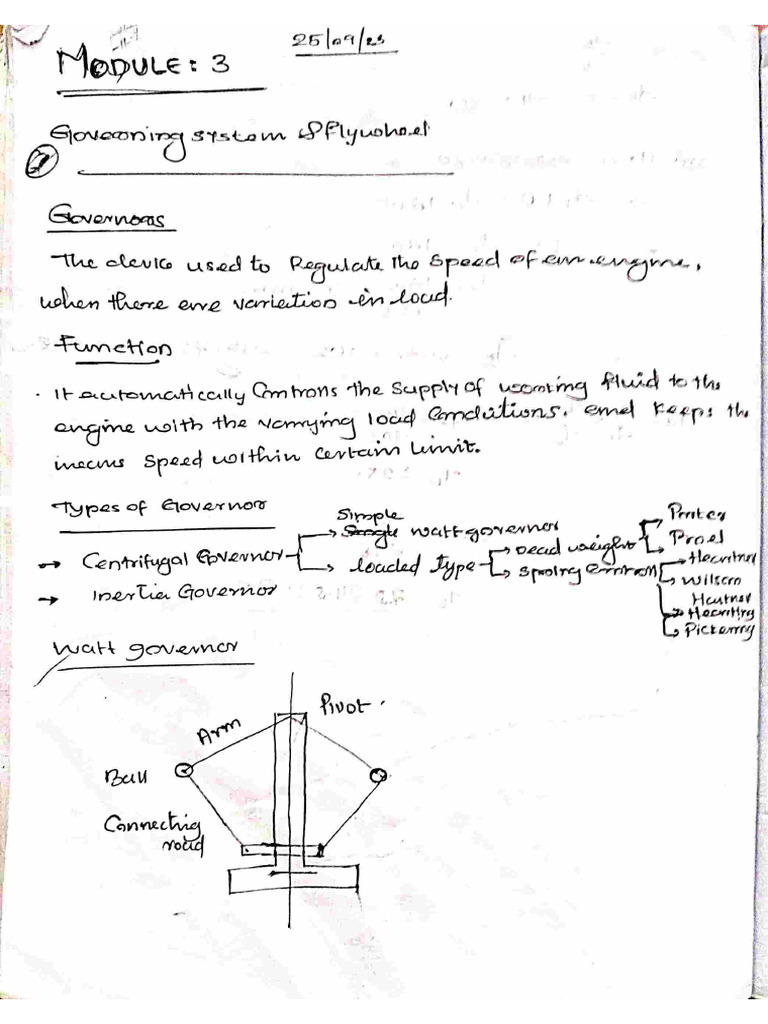 25/09/23
MODULE: 3
Governing system & flywheel
7
Governors
The device used to Regulate the speed of an engine,
when there are variation in load.
Function
. It automatically Controns the supply of working fluid to the
engine with the varrying load Conditions. and keeps the
means speed within certain limit.
Types of Governor
→ Centrifugal Governor
→ Inertia Governor
Simple
Single watt governor
loaded type
Dead weight
spring control
Porter
Proel
Heartnel
Wilson
Hartnel
Hearting
Pickering
Watt governor
Pivot
Arm
Ball
Connecting
road